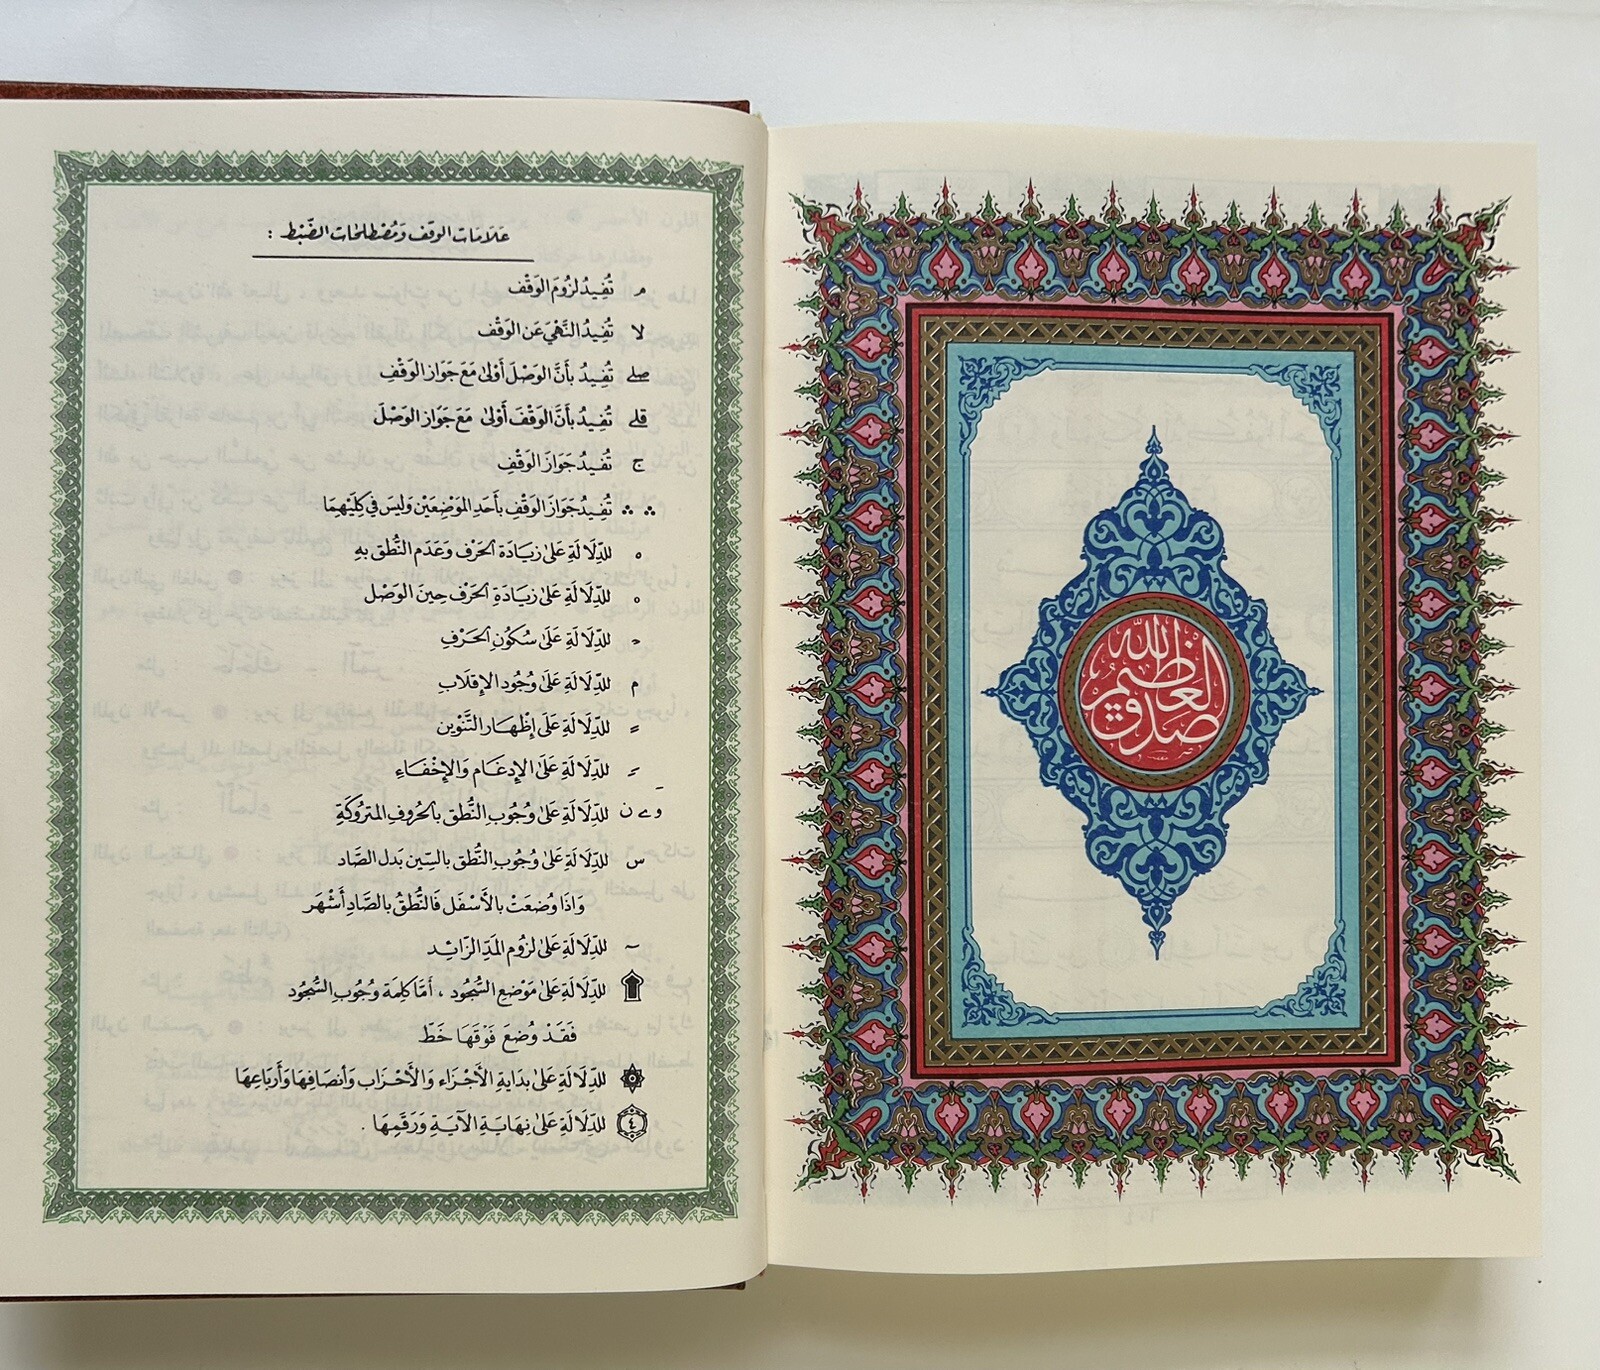 صدق الله العظيم
علامات الوقف ومصطلحات الضبط :
م تُفِيدُ لزُومَ الوَقْف
لا تُفِيدُ النَّهْيَ عَنِ الوَقْف
صلے تُفِيدُ بأنَّ الوَصْلَ أَوْلىٰ مَعَ جَوَازِ الوَقْفِ
قلے تُفِيدُ بأنَّ الوَقْفَ أَوْلىٰ مَعَ جَوَازِ الوَصْلَ
ج تُفِيدُ جَوَازَ الوَقْفِ
∴ ∴ تُفِيدُ جَوَازَ الوَقْفِ بأَحَدِ المَوْضِعَيْنِ وَليسَ في كِلَيْهِمَا
ه للدِّلَالَةِ عَلىٰ زيَادَةِ الحَرْفِ وَعَدَمِ النُّطْقِ بهِ
ه للدِّلَالَةِ عَلىٰ زيَادَةِ الحَرْفِ حِينَ الوَصْل
ح للدِّلَالَةِ عَلىٰ سُكُونِ الحَرْفِ
م للدِّلَالَةِ عَلىٰ وُجُودِ الإقلَابِ
ـً للدِّلَالَةِ عَلىٰ إظهَارِ التَّنْوِين
ـً للدِّلَالَةِ عَلىٰ الإدغَامِ وَالإخْفَاءِ
و ے ن للدِّلَالَةِ عَلىٰ وُجُوبِ النُّطقِ بالحُروفِ المتروكَةِ
س للدِّلَالَةِ عَلىٰ وُجُوبِ النُّطقِ بالسِّينِ بَدلَ الصَّاد
وَاذَا وُضعَتْ بالأَسْفَل فَالنُّطقُ بالصَّادِ أَشْهَر
~ للدِّلَالَةِ عَلىٰ لزُومِ المَدِّ الزّائِد
للدِّلَالَةِ عَلىٰ مَوْضِعِ السُّجُود ، أمَّا كلِمَة وُجُوبِ السُّجُود
فَقَدْ وُضعَ فَوْقَهَا خَطّ
للدِّلَالَةِ عَلىٰ بدَايَةِ الأجْزَاءِ وَالأَحْزَابِ وَأنصَافِهَا وَأَربَاعِهَا
٤ للدِّلَالَةِ عَلىٰ نِهَايَةِ الآيَةِ وَرَقَمِهَا .